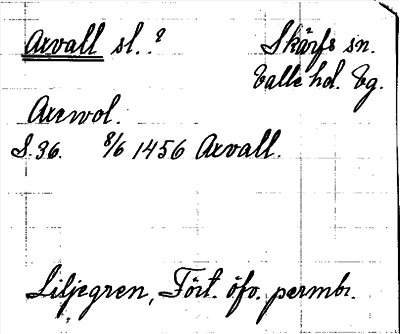 Arvall sl. ? Skärfs sn.
Valle hd. Vg.
Arewol.
S. 36. 8/6 1456 Arvall.
Liljegren, Fört. öfv. permbr.